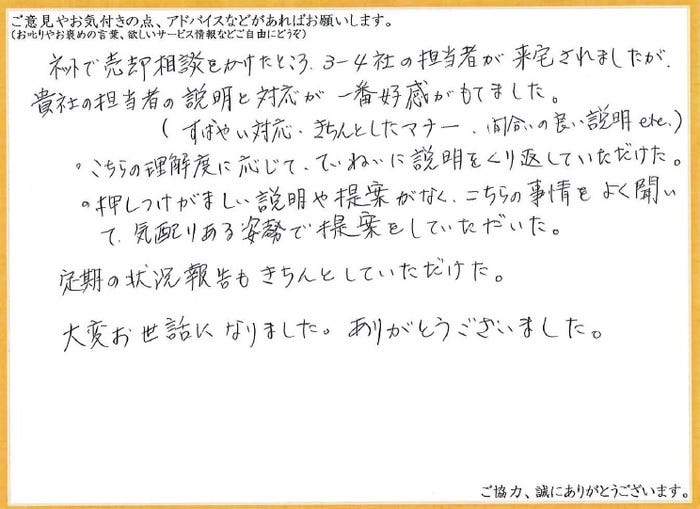 ご意見やお気付きの点、アドバイスなどがあればお願いします。
(お叱りやお褒めの言葉、欲しいサービス情報などご自由にどうぞ)
ネットで売却相談をかけたところ、3-4社の担当者が来宅されましたが、
貴社の担当者の説明と対応が一番好感がもてました。
(すばやい対応、きちんとしたマナー、間合いの良い説明etc.)
・こちらの理解度に応じて、ていねいに説明をくり返していただけた。
・押しつけがましい説明や提案がなく、こちらの事情をよく聞い
て、気配りある姿勢で提案をしていただいた。
定期の状況報告もきちんとしていただけた。
大変お世話になりました。ありがとうございました。
ご協力、誠にありがとうございます。